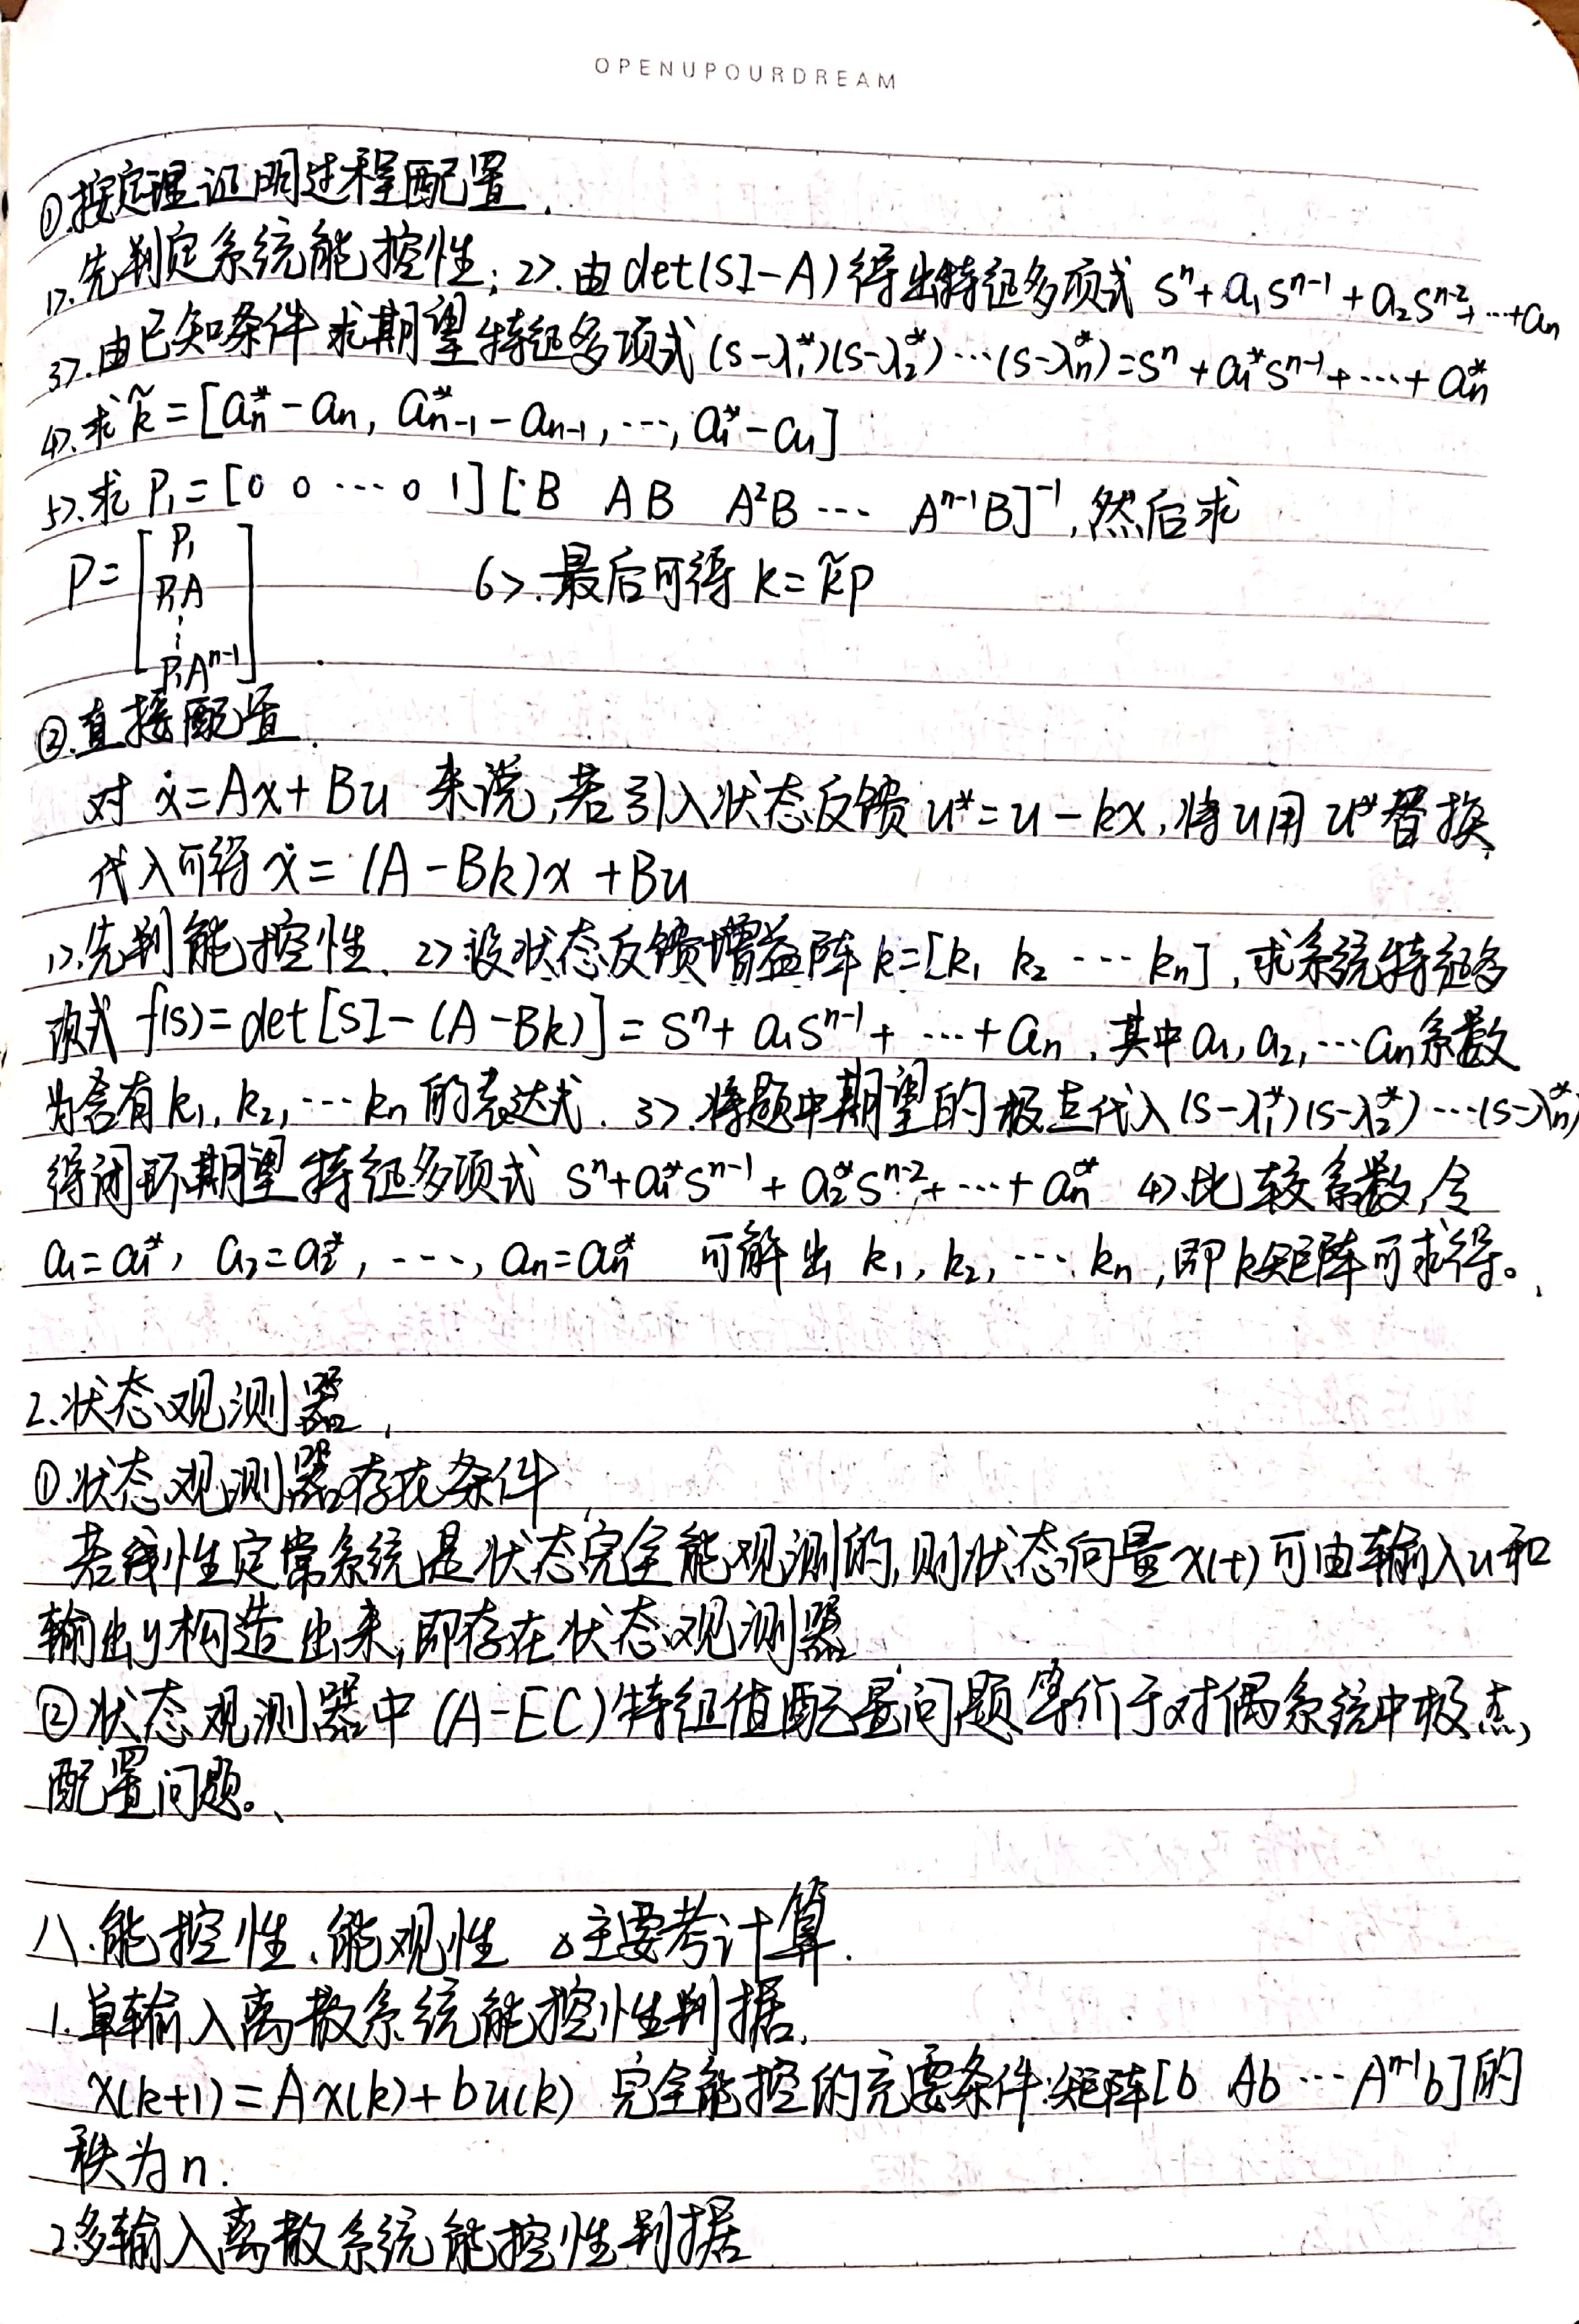 OPENUPOURDREAM
①按定理证明过程配置.
1>.先判定系统能控性; 2>.由det(SI-A)得出特征多项式 Sⁿ+a₁Sⁿ⁻¹+a₂Sⁿ⁻²+…+aₙ
3>.由已知条件求期望特征多项式(s-λ₁*)(s-λ₂*)…(s-λₙ*)=Sⁿ+a₁*Sⁿ⁻¹+…+aₙ*
4>.求k̃=[aₙ*-aₙ, aₙ₋₁*-aₙ₋₁,…, a₁*-a₁]
5>.求P₁=[0 0 … 0 1][B AB A²B … Aⁿ⁻¹B]⁻¹,然后求
P=[P₁ P₁A ⋮ P₁Aⁿ⁻¹] 6>.最后可得 k=k̃P
②.直接配置.
对 ẋ=Ax+Bu 来说,若引入状态反馈u*=u-kx,将u用u*替换,
代入可得ẋ=(A-Bk)x+Bu
1>.先判能控性. 2>设状态反馈增益阵k=[k₁ k₂ … kₙ],求系统特征多
项式 f(s)=det[SI-(A-Bk)]=Sⁿ+a₁Sⁿ⁻¹+…+aₙ.其中a₁,a₂,…aₙ系数
为含有k₁,k₂,…kₙ的表达式. 3>.将题中期望的极点代入(s-λ₁*)(s-λ₂*)…(s-λₙ*)
得闭环期望特征多项式 Sⁿ+a₁*Sⁿ⁻¹+a₂*Sⁿ⁻²+…+aₙ* 4>.比较系数,令
a₁=a₁*, a₂=a₂*, …, aₙ=aₙ* 可解出 k₁,k₂,…kₙ,即k矩阵可求得。
2.状态观测器.
①.状态观测器存在条件
若线性定常系统是状态完全能观测的,则状态向量x(t)可由输入u和
输出y构造出来,即存在状态观测器
②状态观测器中(A-EC)特征值配置问题等价于对偶系统中极点
配置问题。
八.能控性、能观性 △主要考计算.
1.单输入离散系统能控性判据.
x(k+1)=Ax(k)+bu(k) 完全能控的充要条件:矩阵[b Ab … Aⁿ⁻¹b]的
秩为n.
2.多输入离散系统能控性判据